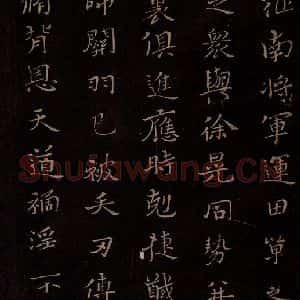 征南将軍運田單之
之衆與徐晃同勢并
裏俱進應時剋捷馘
帥關羽已被矢刃傅
脩背恩天道禍淫不
Shufawang.CN